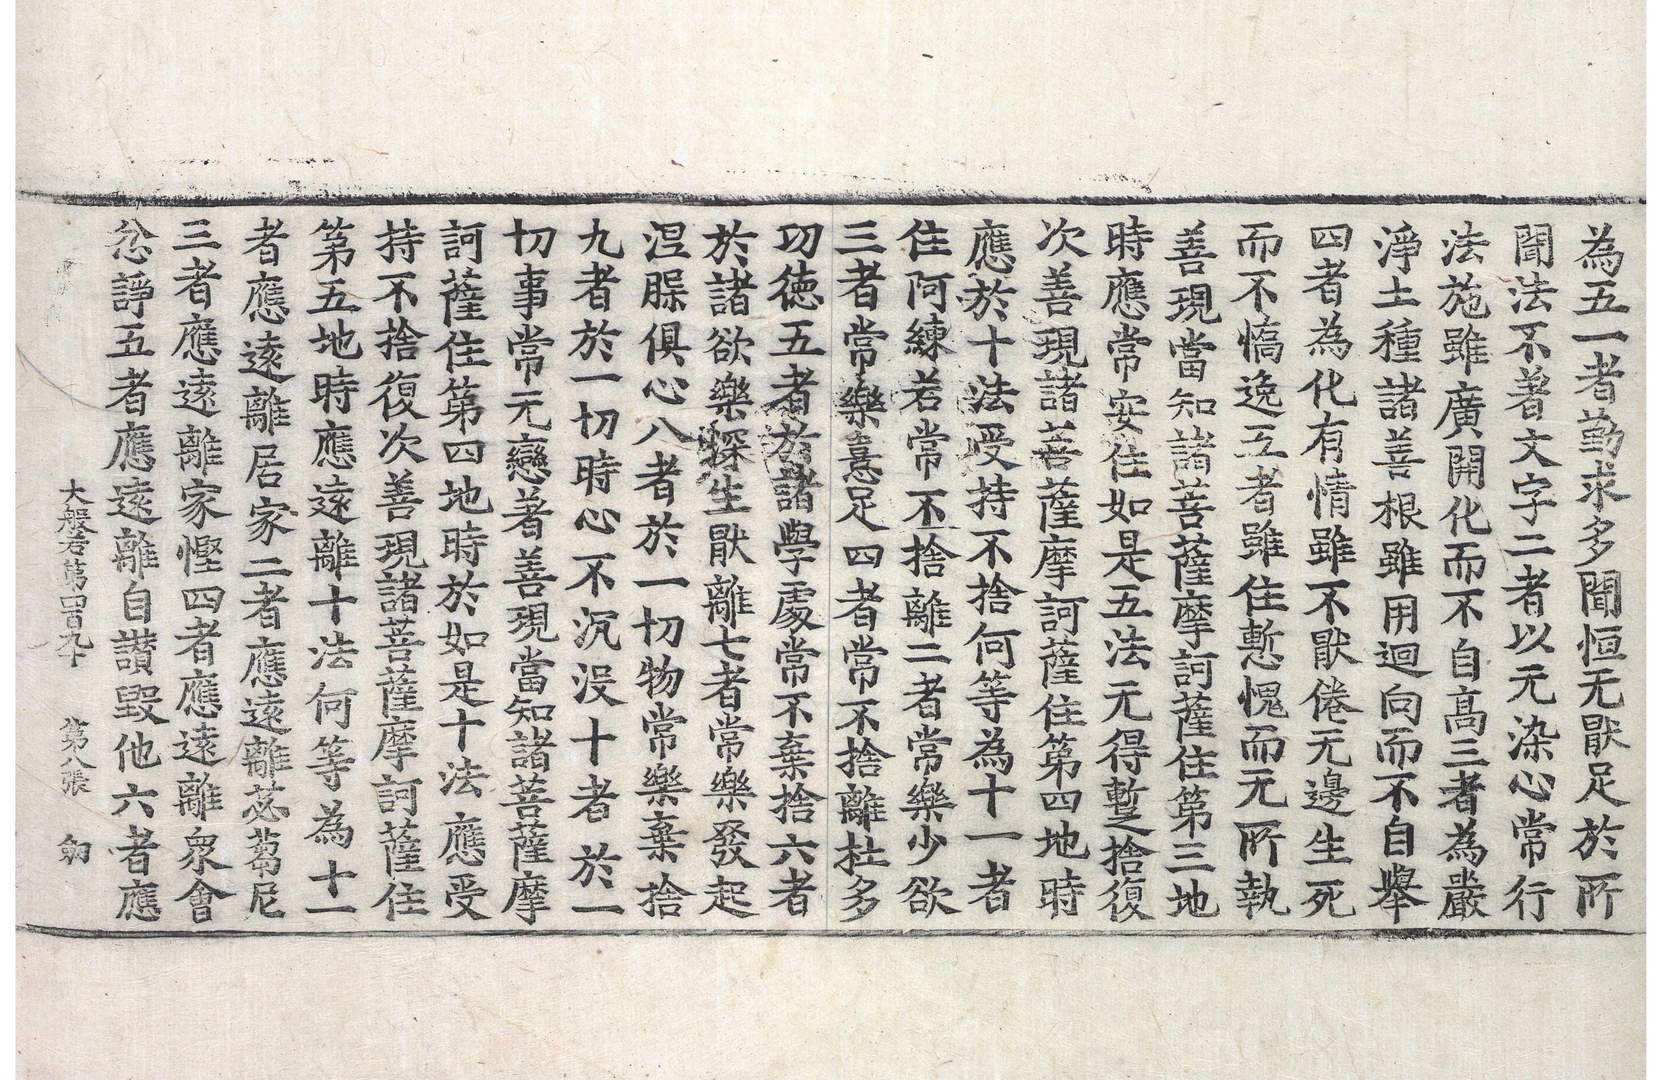 為五一者勤求多聞恒无猒足於所
聞法不著文字二者以无染心常行
法施雖廣開化而不自高三者為嚴
淨土種諸善根雖用迴向而不自舉
四者為化有情雖不猒倦无邊生死
而不憍逸五者雖住慙愧而无所執
善現當知諸菩薩摩訶薩住第三地
時應常安住如是五法无得蹔捨復
次善現諸菩薩摩訶薩住第四地時
應於十法受持不捨何等為十一者
住阿練若常不捨離二者常樂少欲
三者常樂憙足四者常不捨離杜多
功徳五者於諸學處常不棄捨六者
於諸欲樂深生猒離七者常樂發起
涅槃俱心八者於一切物常樂棄捨
九者於一切時心不沉沒十者於一
切事常元戀著善現當知諸菩薩摩
訶薩住第四地時於如是十法應受
持不捨復次善現諸菩薩摩訶薩住
第五地時應遠離十法何等為十一
者應遠離居家二者應遠離苾蒭尼
三者應遠離家慳四者應遠離衆會
忿諍五者應遠離自讃毀他六者應
大般若第四百九十 第八張 劒